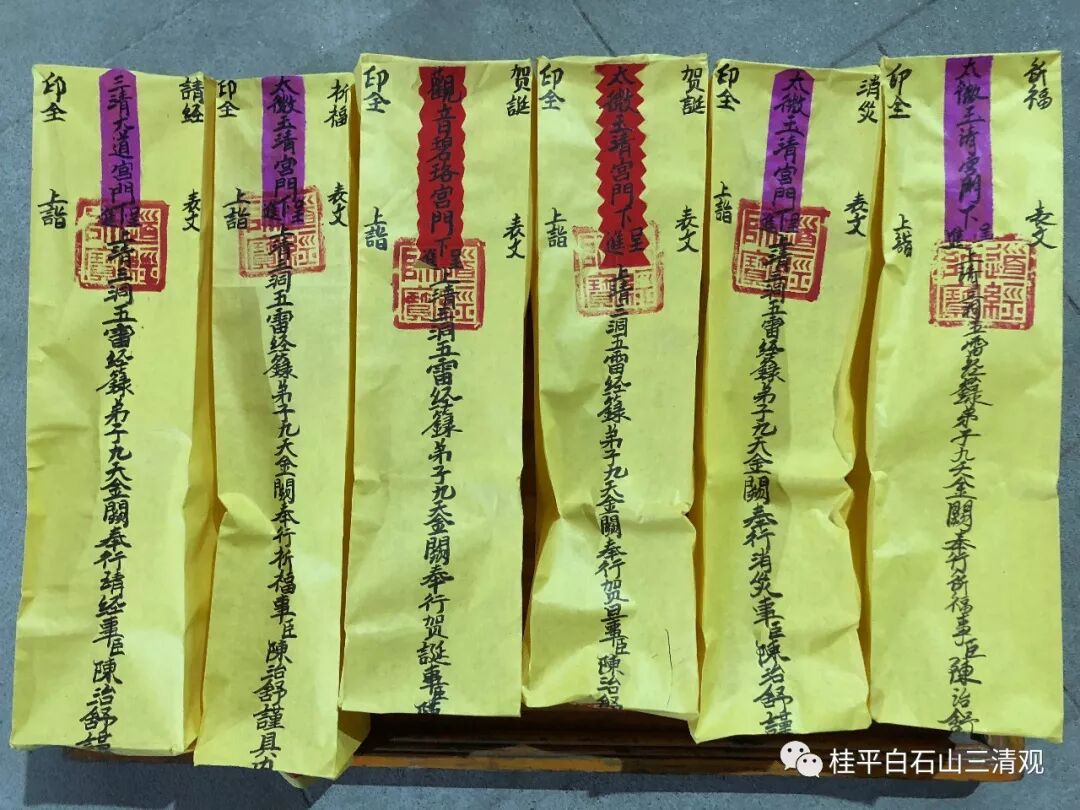 請经
表文
三清大道宫門下呈進上清三洞五雷经籙弟子九天金闕奉行請经事臣陳治舒謹
印全
上詣
祈福
表文
太微玉清宫門下呈進上清三洞五雷经籙弟子九天金闕奉行祈福事臣陳治舒謹具
印全
上詣
贺誕
表文
觀音碧珞宫門下呈進上清五洞五雷经籙弟子九天金闕奉行贺誕事臣陳
印全
上詣
贺誕
表文
太微玉清宫門下呈進上清三洞五雷经籙弟子九天金闕奉行贺旦事臣陳治舒
印全
上詣
消災
表文
太微玉清宫門下呈進上清三洞五雷经籙弟子九天金闕奉行消災事臣陳治舒謹
印全
上詣
祈福
表文
太微玉清宫門下呈進上清三洞五雷经籙弟子九天金闕奉行祈福事臣陳治舒
印全
上詣
道經師寶
道經師寶
道經師寶
道經師寶
道經師寶
道經師寶
桂平白石山三清观